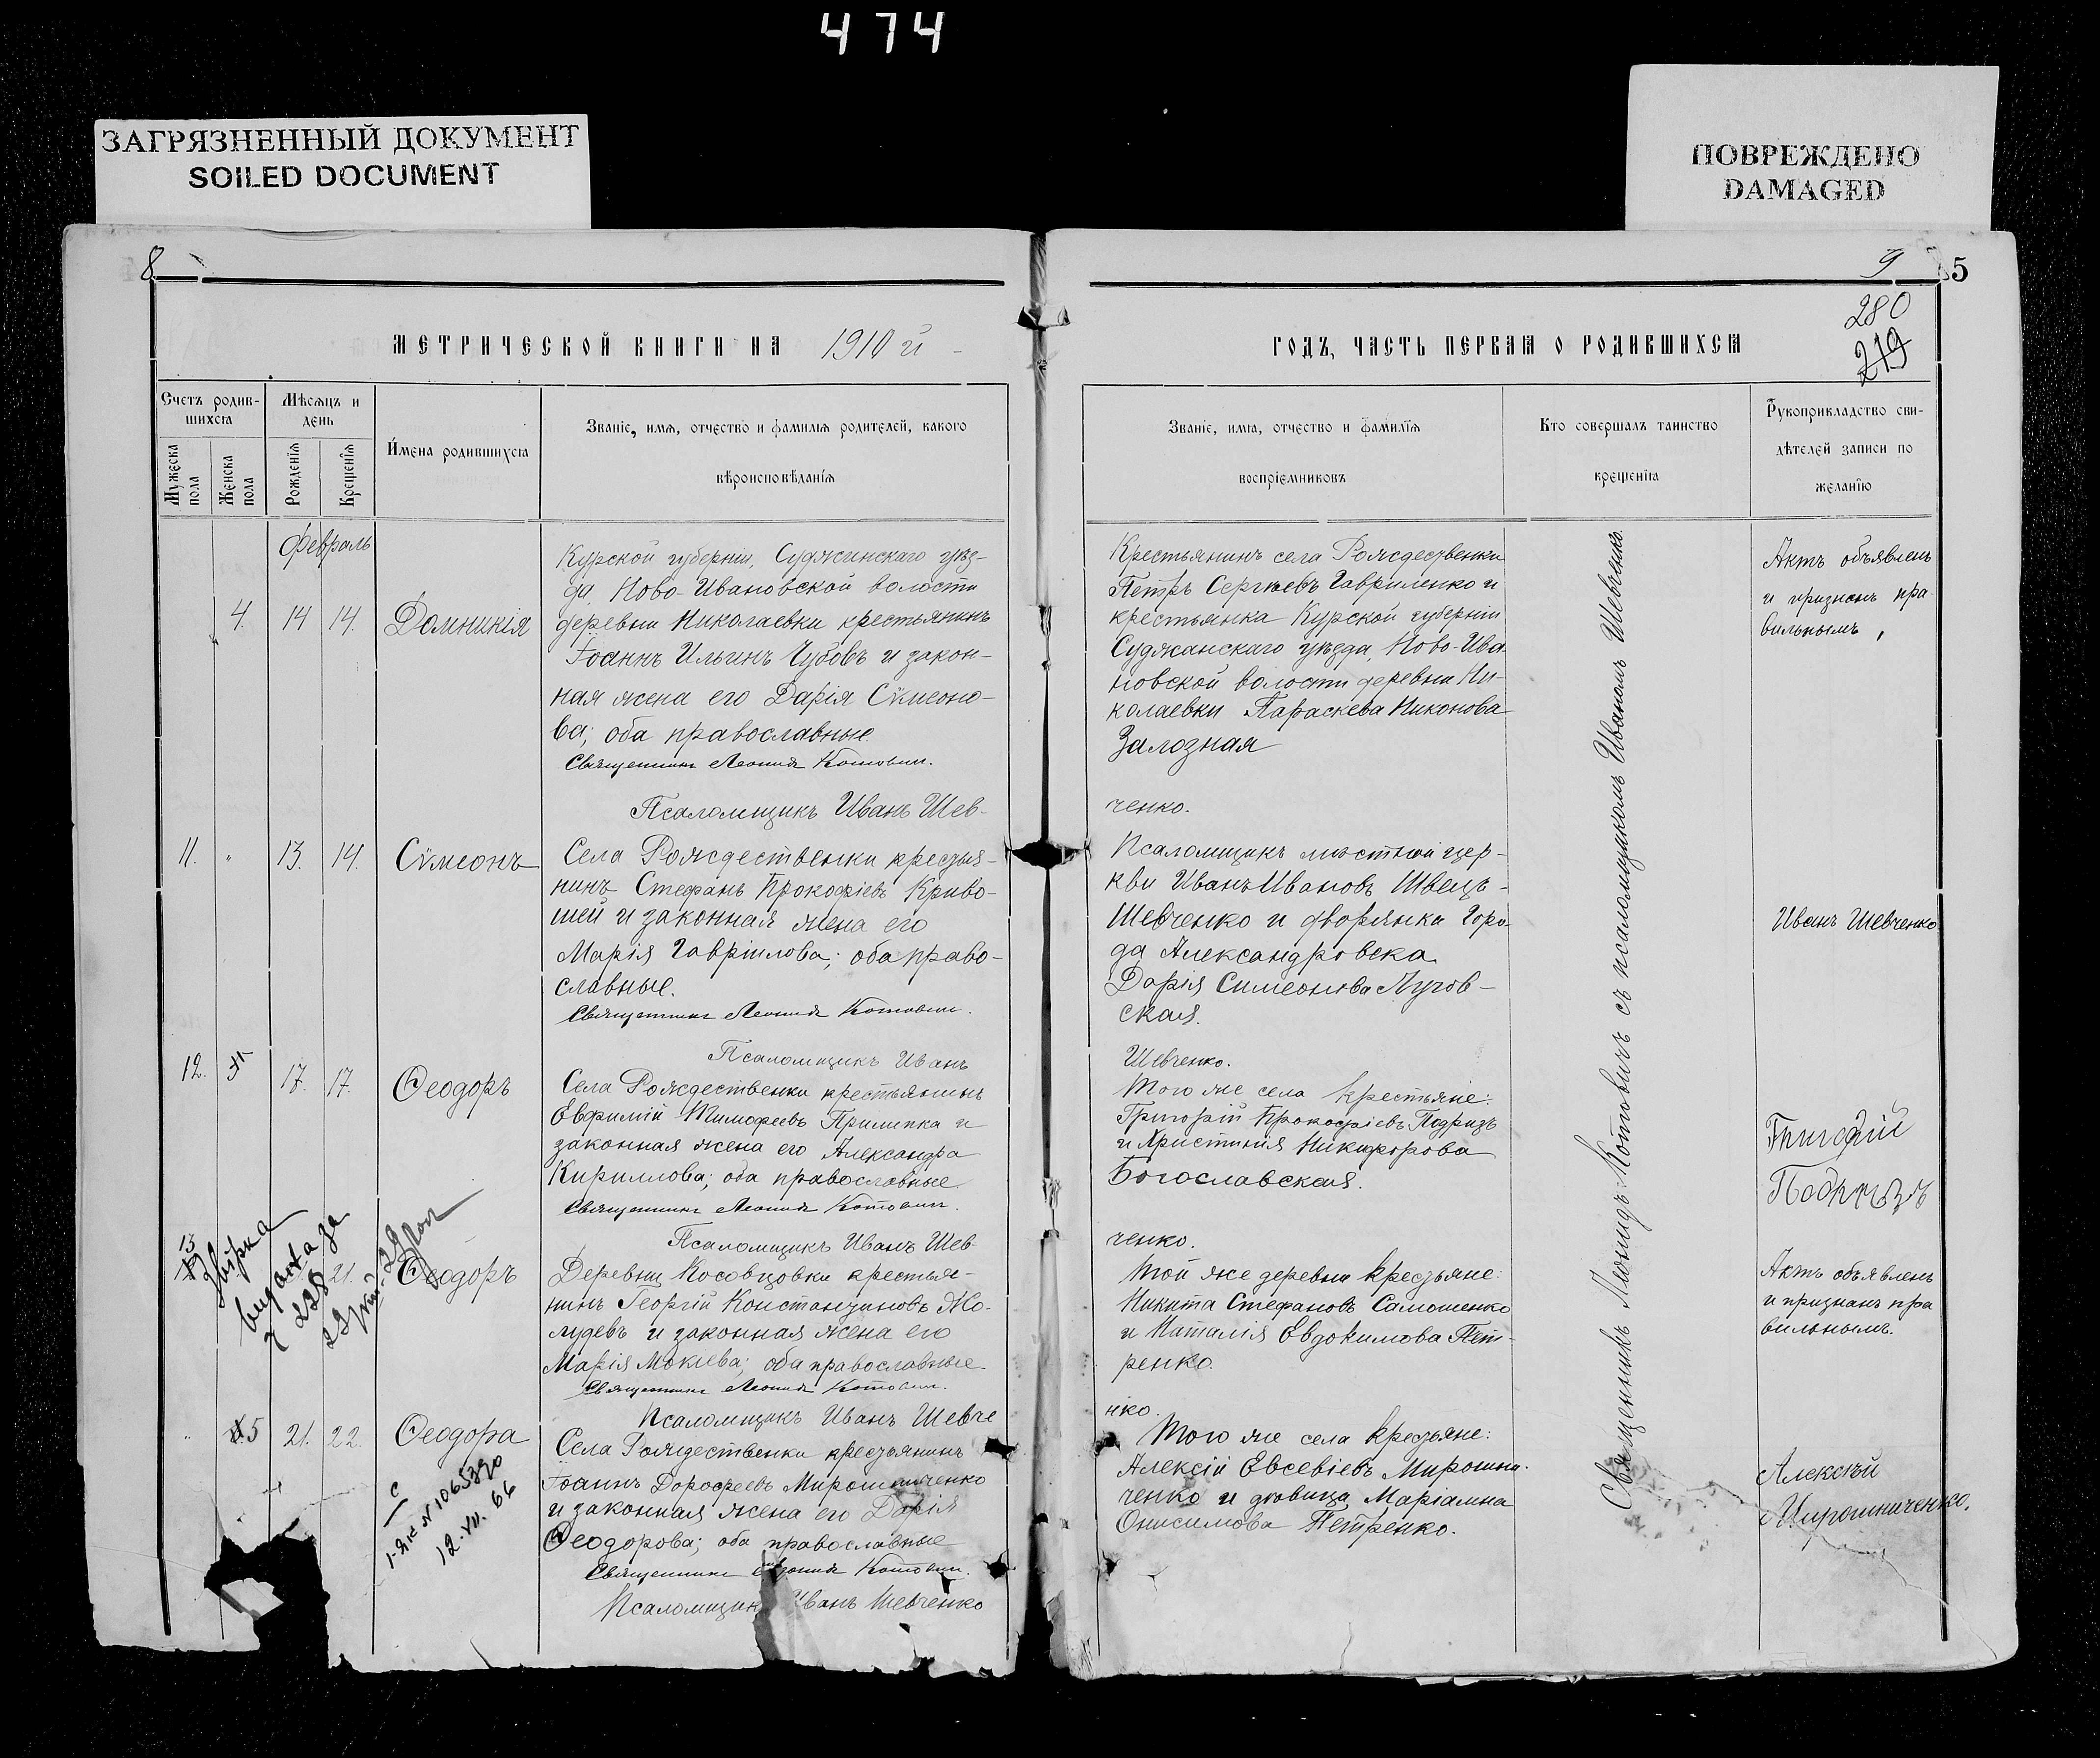 474
ЗАГРЯЗНЕННЫЙ ДОКУМЕНТ
SOILED DOCUMENT
ПОВРЕЖДЕНО
DAMAGED
8
МЕТРИЧЕСКОЙ КНИГИ НА 1910 й
Счетъ родив-
шихся
Мѣсяцъ и
день
Мужеска
пола
Женска
пола
Рожденія
Крещенія
Имена родившихся
Званіе, имя, отчество и фамилія родителей, какого
вѣроисповѣданія
Февраль
4. 14 14. Домникія
Курской губерніи, Суджанскаго уѣз-
да Ново-Ивановской волости
деревни Николаевки крестьянинъ
Іоаннъ Ильинъ Чубовъ и закон-
ная жена его Дарія Сѵмеоно-
ва; оба православные
Священникъ Леонидъ Котовичъ.
Псаломщикъ Иванъ Шев-
11. " 13. 14. Сѵмеонъ
Села Рождественки крестья-
нинъ Стефанъ Прокофіевъ Криво-
шей и законная жена его
Марія Гавріилова; оба право-
славные.
Священникъ Леонидъ Котовичъ.
Псаломщикъ Иванъ
12. 17. 17. Ѳеодоръ
Села Рождественки крестьянинъ
Евфимій Тимофеевъ Прилипка и
законная жена его Александра
Кириллова; оба православные
Священникъ Леонидъ Котовичъ.
Псаломщикъ Иванъ Шев-
13 21. Ѳеодоръ
Деревни Косовцовки крестья-
нинъ Георгій Константиновъ Жо-
лудевъ и законная жена его
Марія Мокіева; оба православные
Священникъ Леонидъ Котовичъ.
Псаломщикъ Иванъ Шевче
" 5 21. 22. Ѳеодора
Села Рождественки крестьянинъ
Іоаннъ Дорофеевъ Мирошниченко
и законная жена его Дарія
Ѳеодорова; оба православные
Священникъ Леонидъ Котовичъ.
Псаломщик Иванъ Шевченко
12. VII. 66
9
5
280
219
ГОДЪ, ЧАСТЬ ПЕРВАЯ О РОДИВШИХСЯ
Званіе, имя, отчество и фамилія
воспріемниковъ
Кто совершалъ таинство
крещенія
Рукоприкладство сви-
дѣтелей записи по
желанію
Крестьянинъ села Рождественки
Петръ Сергѣевъ Гавриленко и
крестьянка Курской губерніи
Суджанскаго уѣзда, Ново-Ива-
новской волости деревни Ни-
колаевки Параскева Никонова
Залозная
ченко.
Псаломщикъ мѣстной цер-
кви Иванъ Ивановъ Швецъ-
Шевченко и дворянка горо-
да Александровска
Дарія Симеонова Лугов-
ская.
Шевченко.
Того же села крестьяне:
Григорій Прокофіевъ Подризъ
и Христинія Никифорова
Богославская.
ченко.
Той же деревни крестьяне:
Никита Стефановъ Самошенко
и Наталія Евдокимова Пет-
ренко.
нко.
Того же села крестьяне:
Алексій Евсевіевъ Мирошни-
ченко и дѣвица Маріамна
Онисимова Петренко.
Священникъ Леонидъ Котовичъ съ псаломщикомъ Иваномъ Шевченкъ
Актъ объявленъ
и признанъ пра
вильнымъ,
Иванъ Шевченко
Григорій
Подризъ
Актъ объявленъ
и признанъ пра
вильнымъ.
Алексѣй
Мирошниченко.